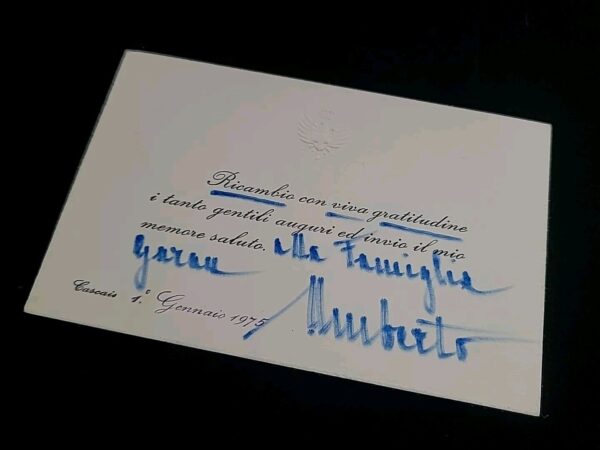 Ricambio con viva gratitudine
i tanto gentili auguri ed invio il mio
memore saluto. alla Famiglia
Garau
Cascais 1° Gennaio 1975
Umberto